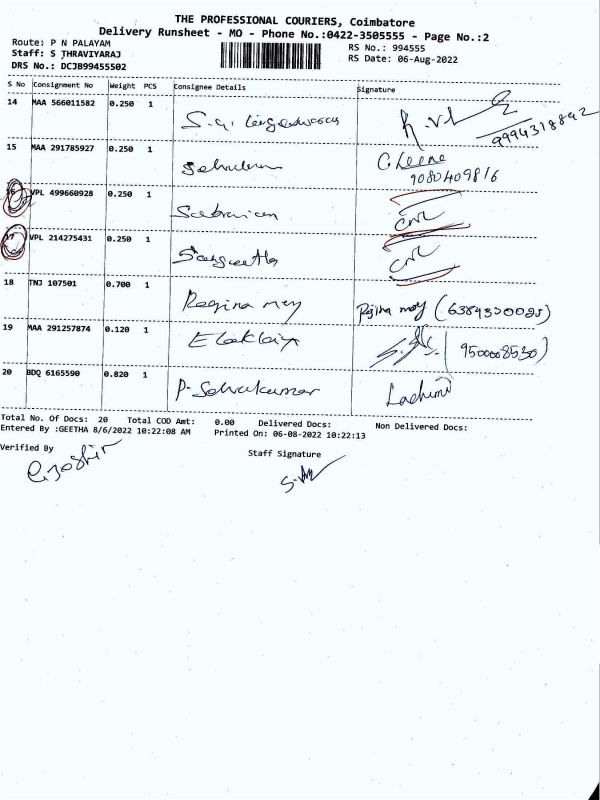 THE PROFESSIONAL COURIERS, Coimbatore
Delivery Runsheet - MO - Phone No.:0422-3505555 - Page No.:2
Route: P N PALAYAM
RS No.: 994555
Staff: S THRAVIYARAJ
RS Date: 06-Aug-2022
DRS No.: DCJB99455502
S No Consignment No Weight PCS Consignee Details Signature
14 MAA 566011582 0.250 1
9994318892
15 MAA 291785927 0.250 1 C. Leena
9080409816
VPL 499660928 0.250 1
17 VPL 214275431 0.250 1 Sangeetha
18 TNJ 107501 0.700 1 Regina mey Rejina mey (6384320025)
19 MAA 291257874 0.120 1 (9500008530)
20 BDQ 6165590 0.820 1 P. Selvakumar
Total No. Of Docs: 20 Total COD Amt: 0.00 Delivered Docs: Non Delivered Docs:
Entered By :GEETHA 8/6/2022 10:22:08 AM Printed On: 06-08-2022 10:22:13
Verified By
Staff Signature